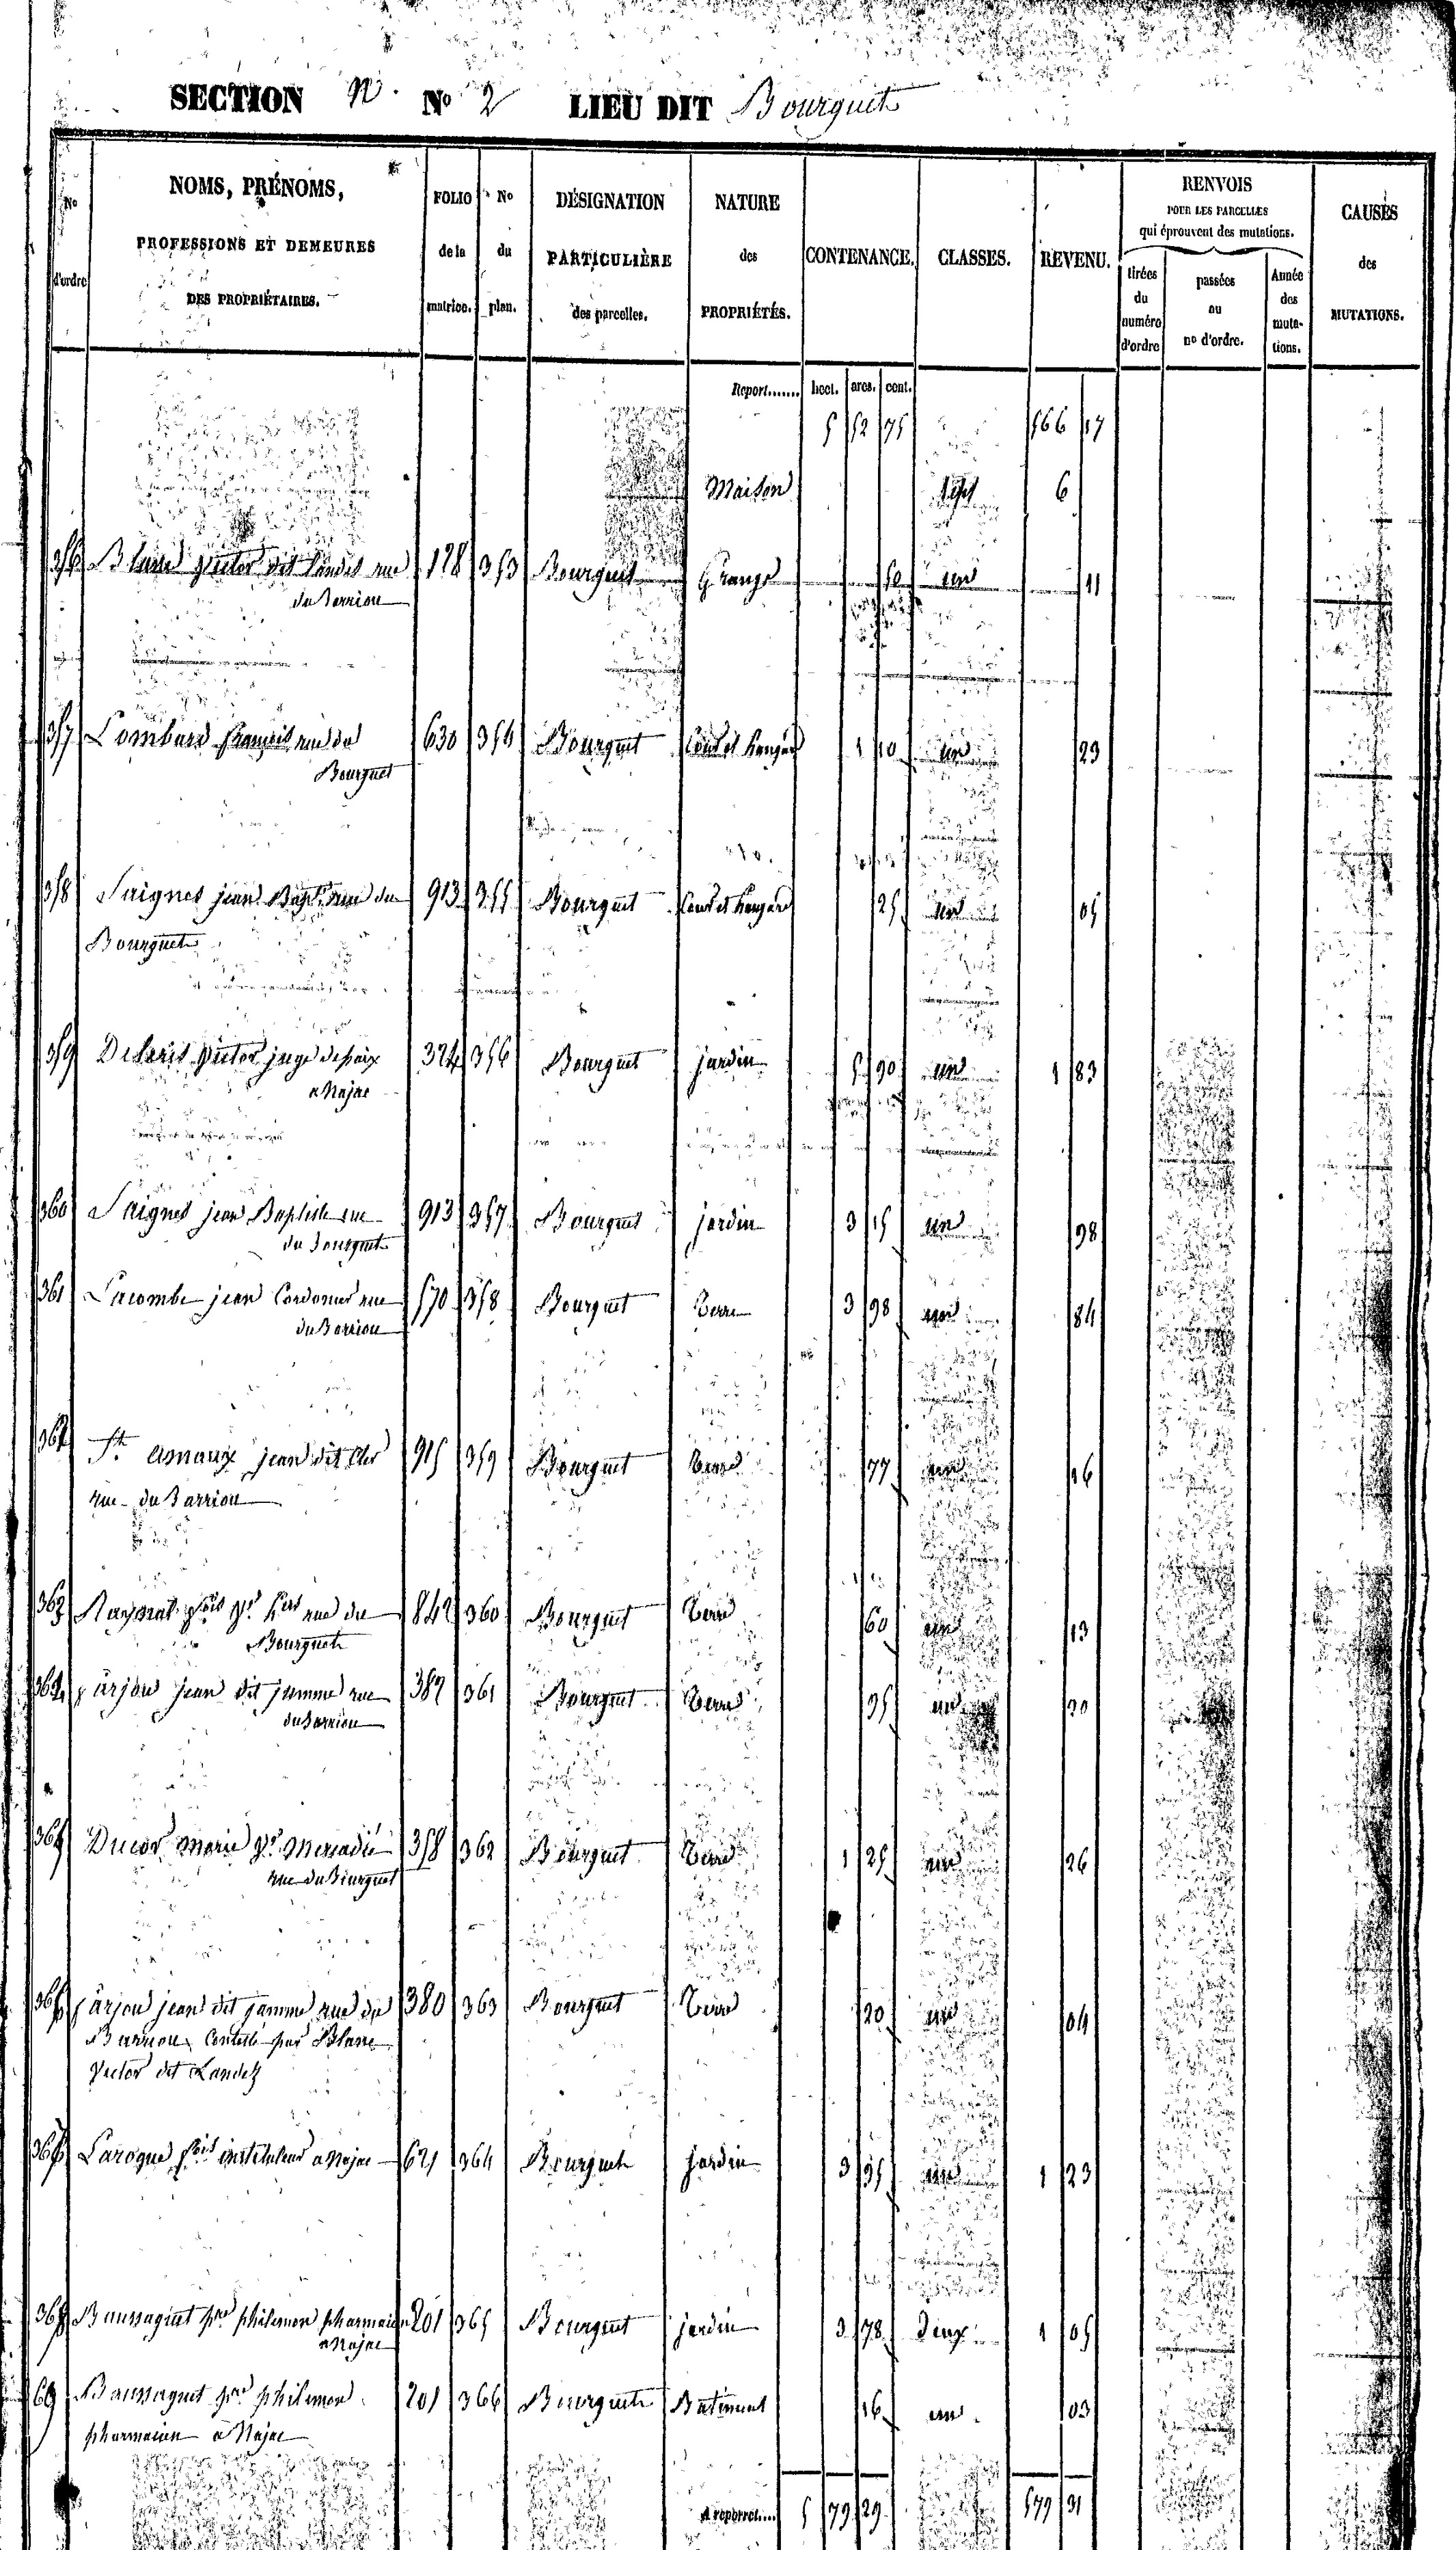 SECTION N. No 2 LIEU DIT Bourguet
No d'ordre
NOMS, PRÉNOMS,
PROFESSIONS ET DEMEURES
DES PROPRIÉTAIRES.
FOLIO de la matrice.
No du plan.
DÉSIGNATION PARTICULIÈRE des parcelles.
NATURE des PROPRIÉTÉS.
CONTENANCE.
CLASSES.
REVENU.
RENVOIS
POUR LES PARCELLES
qui éprouvent des mutations.
tirées du numéro d'ordre
passées au no d'ordre.
Année des muta-tions.
CAUSES des MUTATIONS.
Report....... hect. ares. cent.
5 52 75 566 17
Maison 6
356 Blanc Victor dit Landes rue 128 353 Bourguet Grange 50 un 11
du Barriou
357 Lombard François rue du 630 354 Bourguet Cour et hangard 1 10 un 23
Bourguet
358 Saignes jean Bapte rue du 913 355 Bourguet Cour et hangard 25 un 05
Bourguet
359 Victor juge de paix 324 356 Bourguet jardin 5 90 un 1 83
a Najac
360 Saignes jean Baptiste rue 913 357 Bourguet jardin 3 15 un 98
du Bourguet
361 Lacombe jean Cordonnier rue 570 358 Bourguet Terre 3 98 un 84
du Barriou
362 St. amaux jean dit 915 359 Bourguet Terre 77 un 16
rue du Barriou
363 rue du 842 360 Bourguet Terre 60 un 13
Bourguet
364 farjou jean dit jamme rue 382 361 Bourguet Terre 95 un 20
du Barriou
365 Ducor Marie Ve Mercadié 358 362 Bourguet Terre 1 25 un 26
rue du Bourguet
366 farjou jean dit jamme rue du 380 363 Bourguet Terre 20 un 04
Barriou Contesté par Blanc
Victor dit Landes
367 Laroque fois instituteur a Najac 621 364 Bourguet jardin 3 95 un 1 23
368 Baussaguet pre philemon pharmacien 201 365 Bourguet jardin 3 78 Deux 1 05
a Najac
69 Baussaguet pre philemon 201 366 Bourguet Batiment 16 un 03
pharmacien à Najac
A reporter.... 5 79 29 579 31